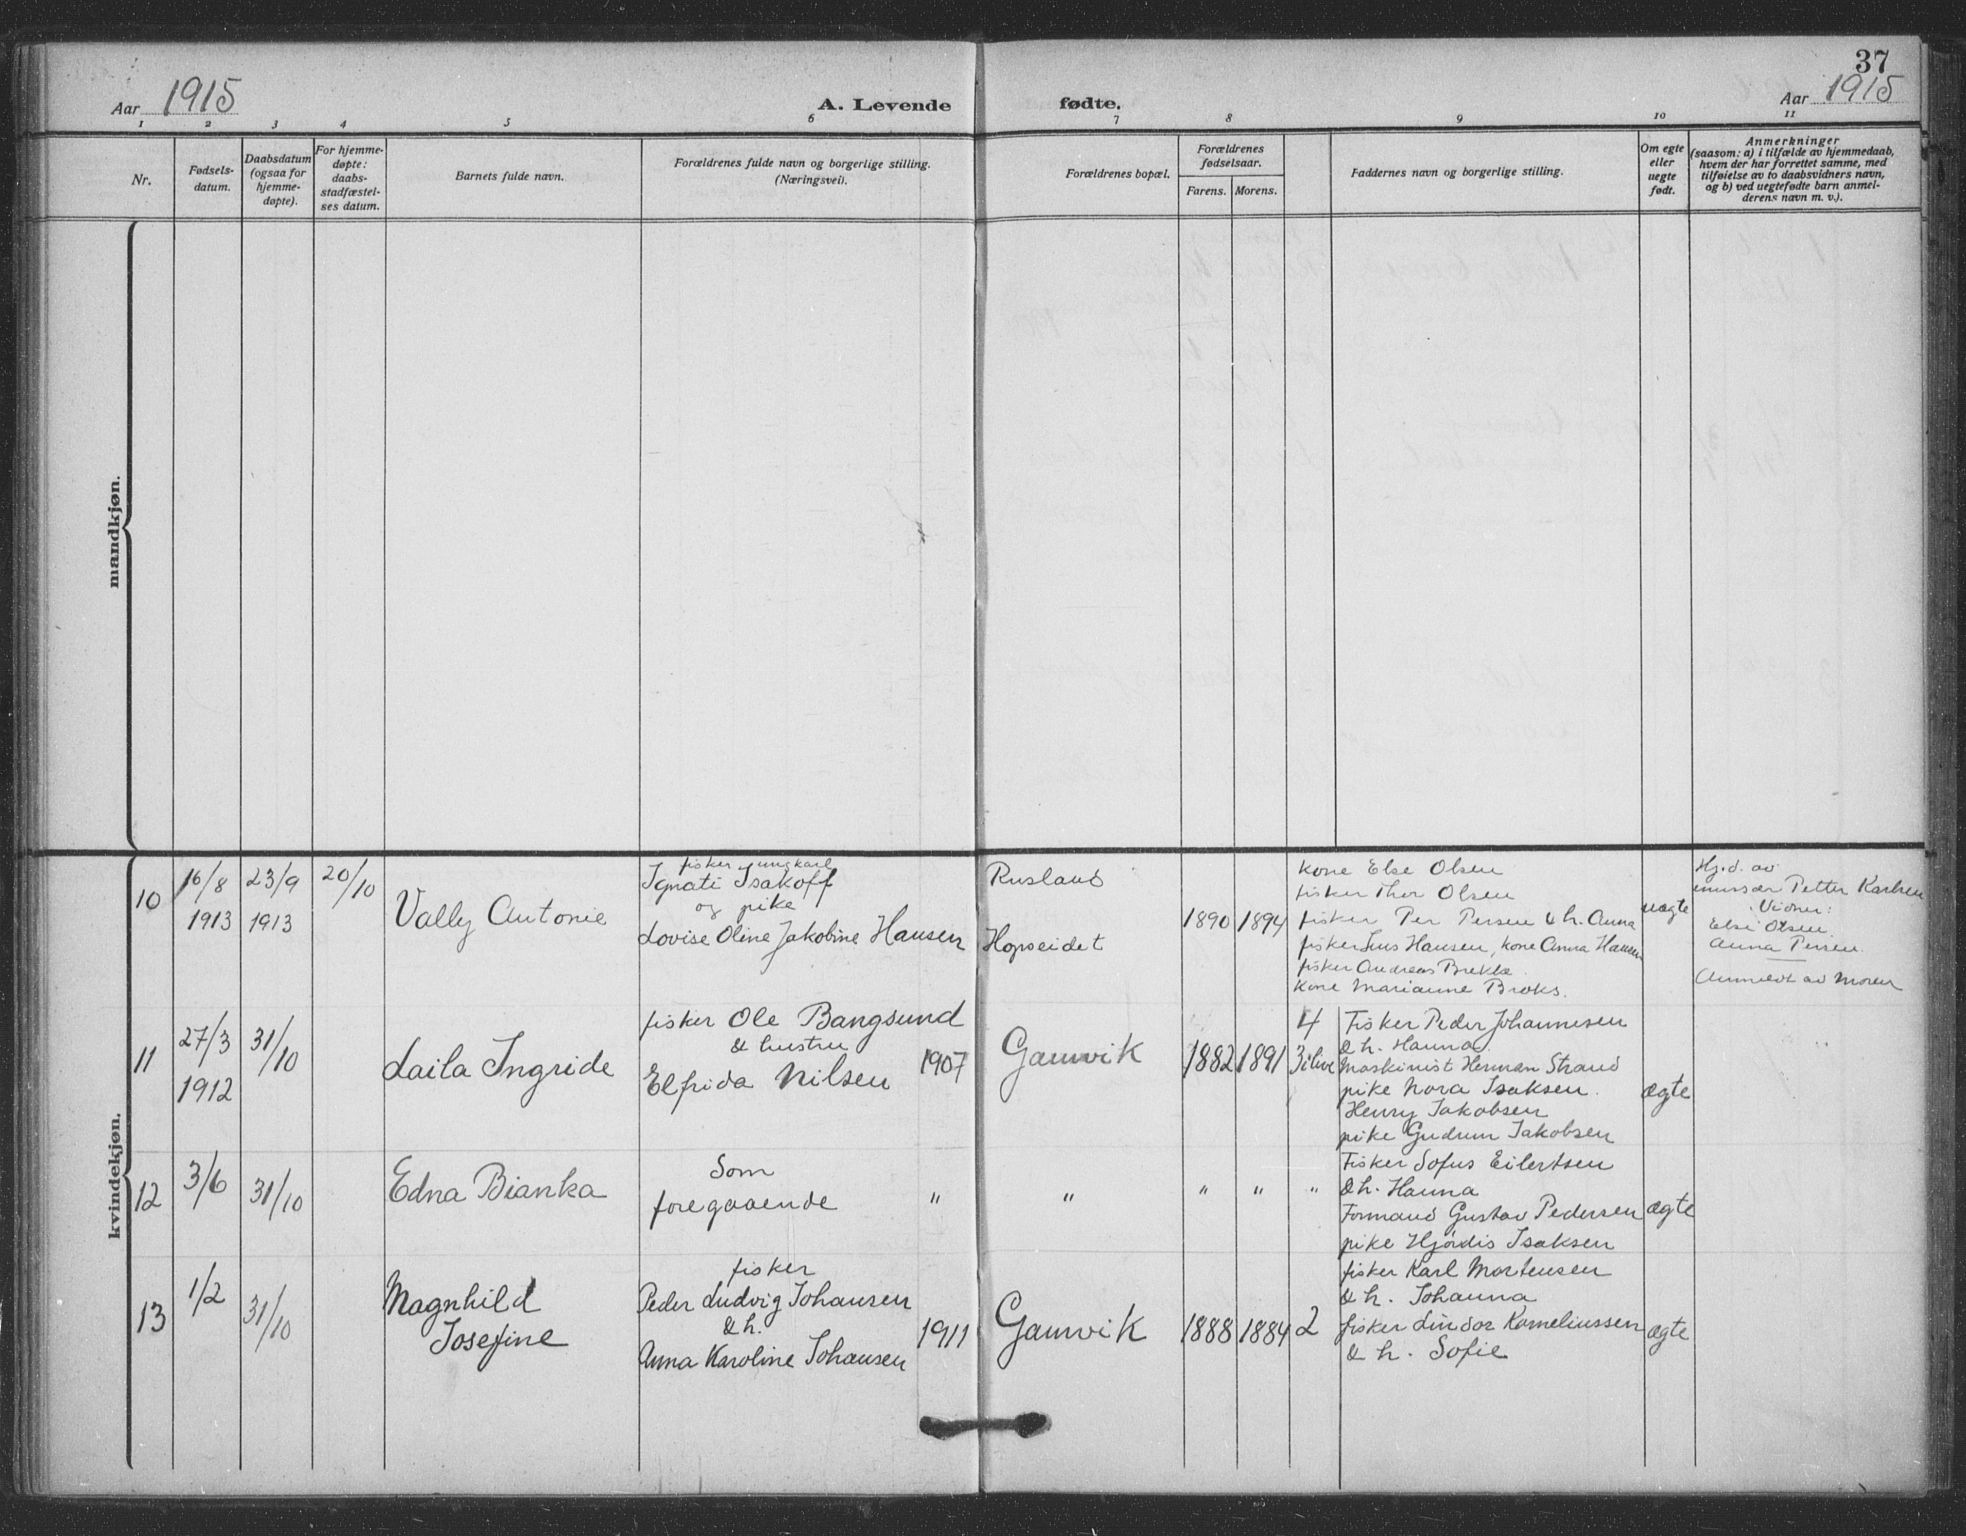 37
Aar 1915
A. Levende fødte.
Aar 1915
1 2 3 4 5 6 7 8 9 10 11
Nr.
Fødsels-
datum.
Daabsdatum
(ogsaa for
hjemme-
døpte).
For hjemme-
døpte:
daabs-
stadfæstel-
ses datum.
Barnets fulde navn.
Forældrenes fulde navn og borgerlige stilling.
(Næringsvei).
Forældrenes bopæl.
Forældrenes
fødselsaar.
Farens. Morens.
Faddernes navn og borgerlige stilling.
Om egte
eller
uegte
født.
Anmerkninger
(saasom: a) i tilfælde av hjemmedaab,
hvem der har forrettet samme, med
tilføielse av to daabsvidners navn,
og b) ved uegtefødte barn anmel-
derens navn m. v.).
mandkjøn.
kvindekjøn.
10
16/8
1913
23/9
1913
20/10
Vally Antonie
fisker ungkarl
Ignati Isakoff
og pike
Lovise Oline Jakobine Hansen
Rusland
Hopseidet
1890 1894
Kone Else Olsen
fisker Thor Olsen
fisker Per Persen & h. Anna
fisker Hansen, kone Anna Hansen
fisker Andreas
Kone Marianne
uægte
Hj.d. av
Petter Karlsen
Vidner:
Else Olsen
Anna Persen
Anmeldt av Moren
11
27/3
1912
31/10
Laila Ingride
fisker Ole Bangsund
& hustru
Elfrida Nilsen 1907
Gamvik
1882 1891
4
3 i live
Fisker Peder Johannesen
& h. Hanna
Maskinist Herman Strand
pike Nora Isaksen
Henry Jakobsen
pike Gudrun Jakobsen
ægte
12
3/6
31/10
Edna Bianka
Som
foregaaende "
"
" " "
Fisker Sofus Eilertsen
& h. Hanna
Formand Gustav Pedersen
pike Hjørdis Isaksen
ægte
13
1/2
31/10
Magnhild
Josefine
fisker
Peder Ludvig Johansen
& h.
Anna Karoline Johansen 1911
Gamvik
1888 1884 2
fisker Karl Mortensen
& h. Johanna
fisker Lindor Korneliussen
& h. Sofie
ægte